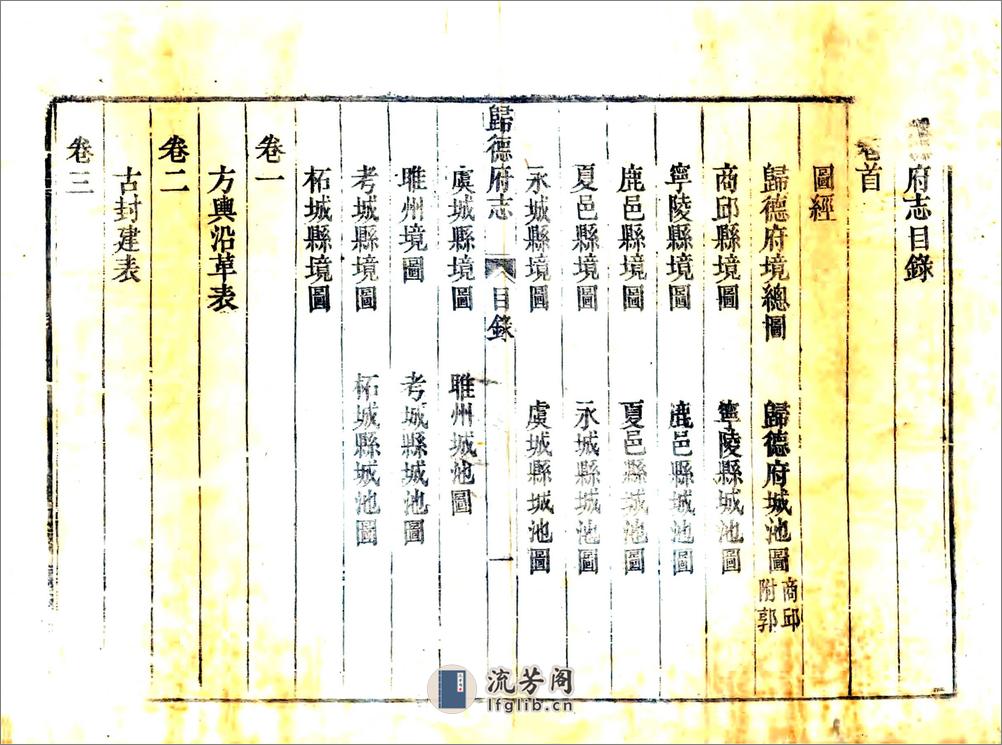 府志目錄
卷首
圖經
歸德府境總圖 歸德府城池圖 商邱附郭
商邱縣境圖 寧陵縣城池圖
寧陵縣境圖 鹿邑縣城池圖
鹿邑縣境圖 夏邑縣城池圖
夏邑縣境圖 永城縣城池圖
永城縣境圖 虞城縣城池圖
歸德府志 目錄 一
虞城縣境圖 睢州城池圖
睢州境圖 考城縣城池圖
考城縣境圖 柘城縣城池圖
柘城縣境圖
卷一
方輿沿革表
卷二
古封建表
卷三
流芳阁
lfglib.cn